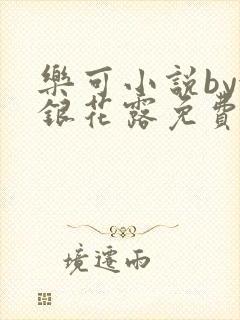 樂可小說by
銀花露免費
境遷雨